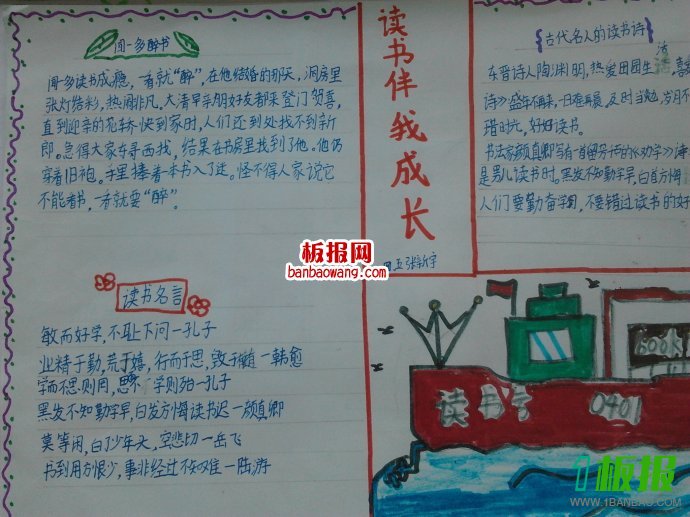 闻一多醉书
闻一多读书成瘾，一看就“醉”，在他结婚的那天，洞房里
张灯结彩，热闹非凡。大清早亲朋好友都来登门贺喜，
直到迎亲的花轿快到家时，人们还到处找不到新
郎。急得大家东寻西找，结果在书房里找到了他。他仍
穿着旧袍。手里捧着一本书入了迷。怪不得人家说它
不能看书，一看就要“醉”。
读书名言
敏而好学，不耻下问一孔子
业精于勤，荒于嬉，行而于思，毁于随一韩愈
学而不思则罔，思 学则殆一孔子
黑发不知勤学早，白发方悔读书迟一颜真卿
莫等闲，白了少年头，空悲切一岳飞
书到用方恨少，事非经过不知难一陆游
读书伴我成长
四五张新宇
古代名人的读书诗
东晋诗人陶渊明，热爱田园生活，喜
诗》盛年不再来，一日难再晨，及时当勉，岁月不
错时光，好好读书。
书法家颜真卿写有一首留芳 的《劝学》诗
是男儿读书时。黑发不知勤学早，白首方悔
人们要勤奋学问，不要错过读书的好
BOOK
读书号 0401
板报网
banbaowang.com
1板报
WWW.1BANBAO.COM